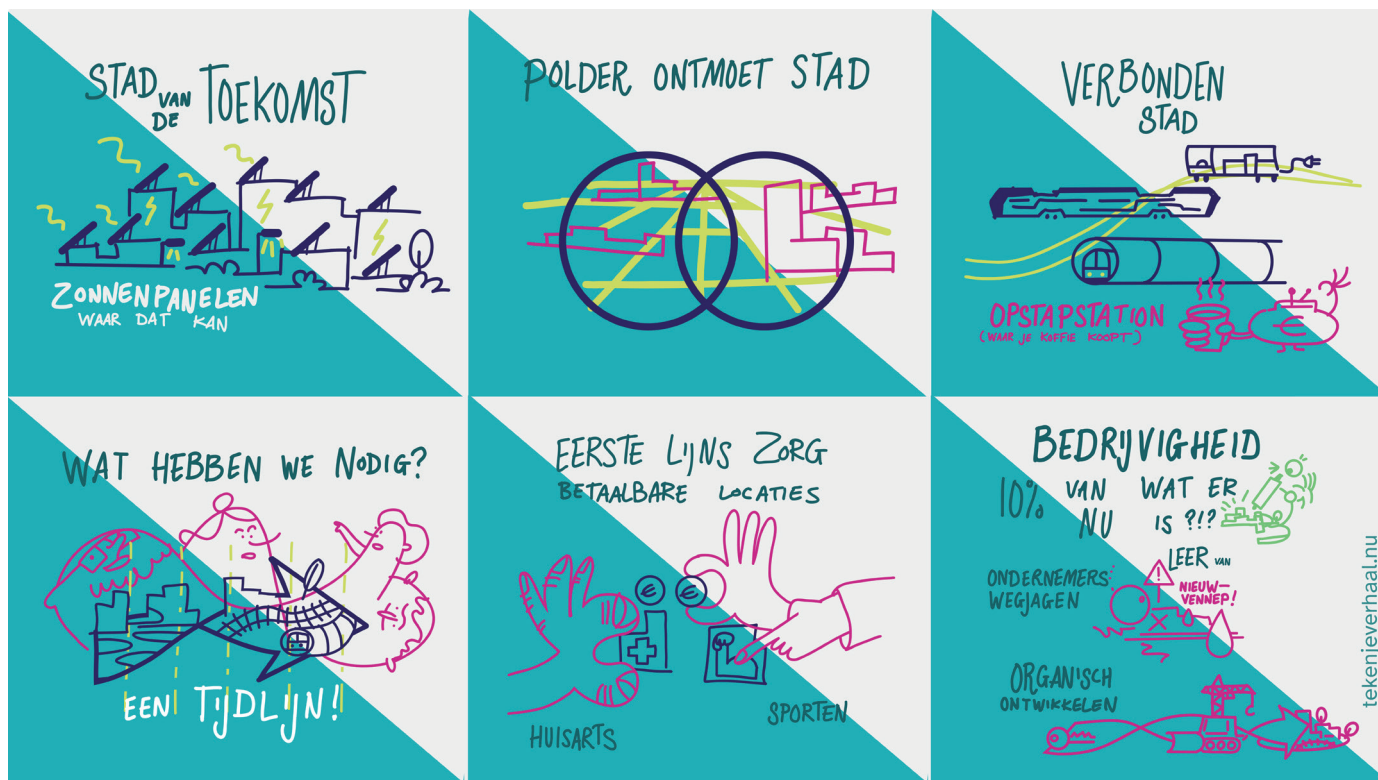 STAD VAN DE TOEKOMST
ZONNENPANELEN
WAAR DAT KAN
POLDER ONTMOET STAD
VERBONDEN
STAD
OPSTAPSTATION
(WAAR JE KOFFIE KOOPT)
WAT HEBBEN WE NODIG?
EEN TIJDLIJN!
EERSTE LIJNS ZORG
BETAALBARE LOCATIES
€ €
HUISARTS
SPORTEN
BEDRIJVIGHEID
10% VAN NU
WAT ER IS ?!?
LEER VAN
NIEUW-
VENNEP!
ONDERNEMERS
WEGJAGEN
ORGANISCH
ONTWIKKELEN
tekenieverhaal.nu